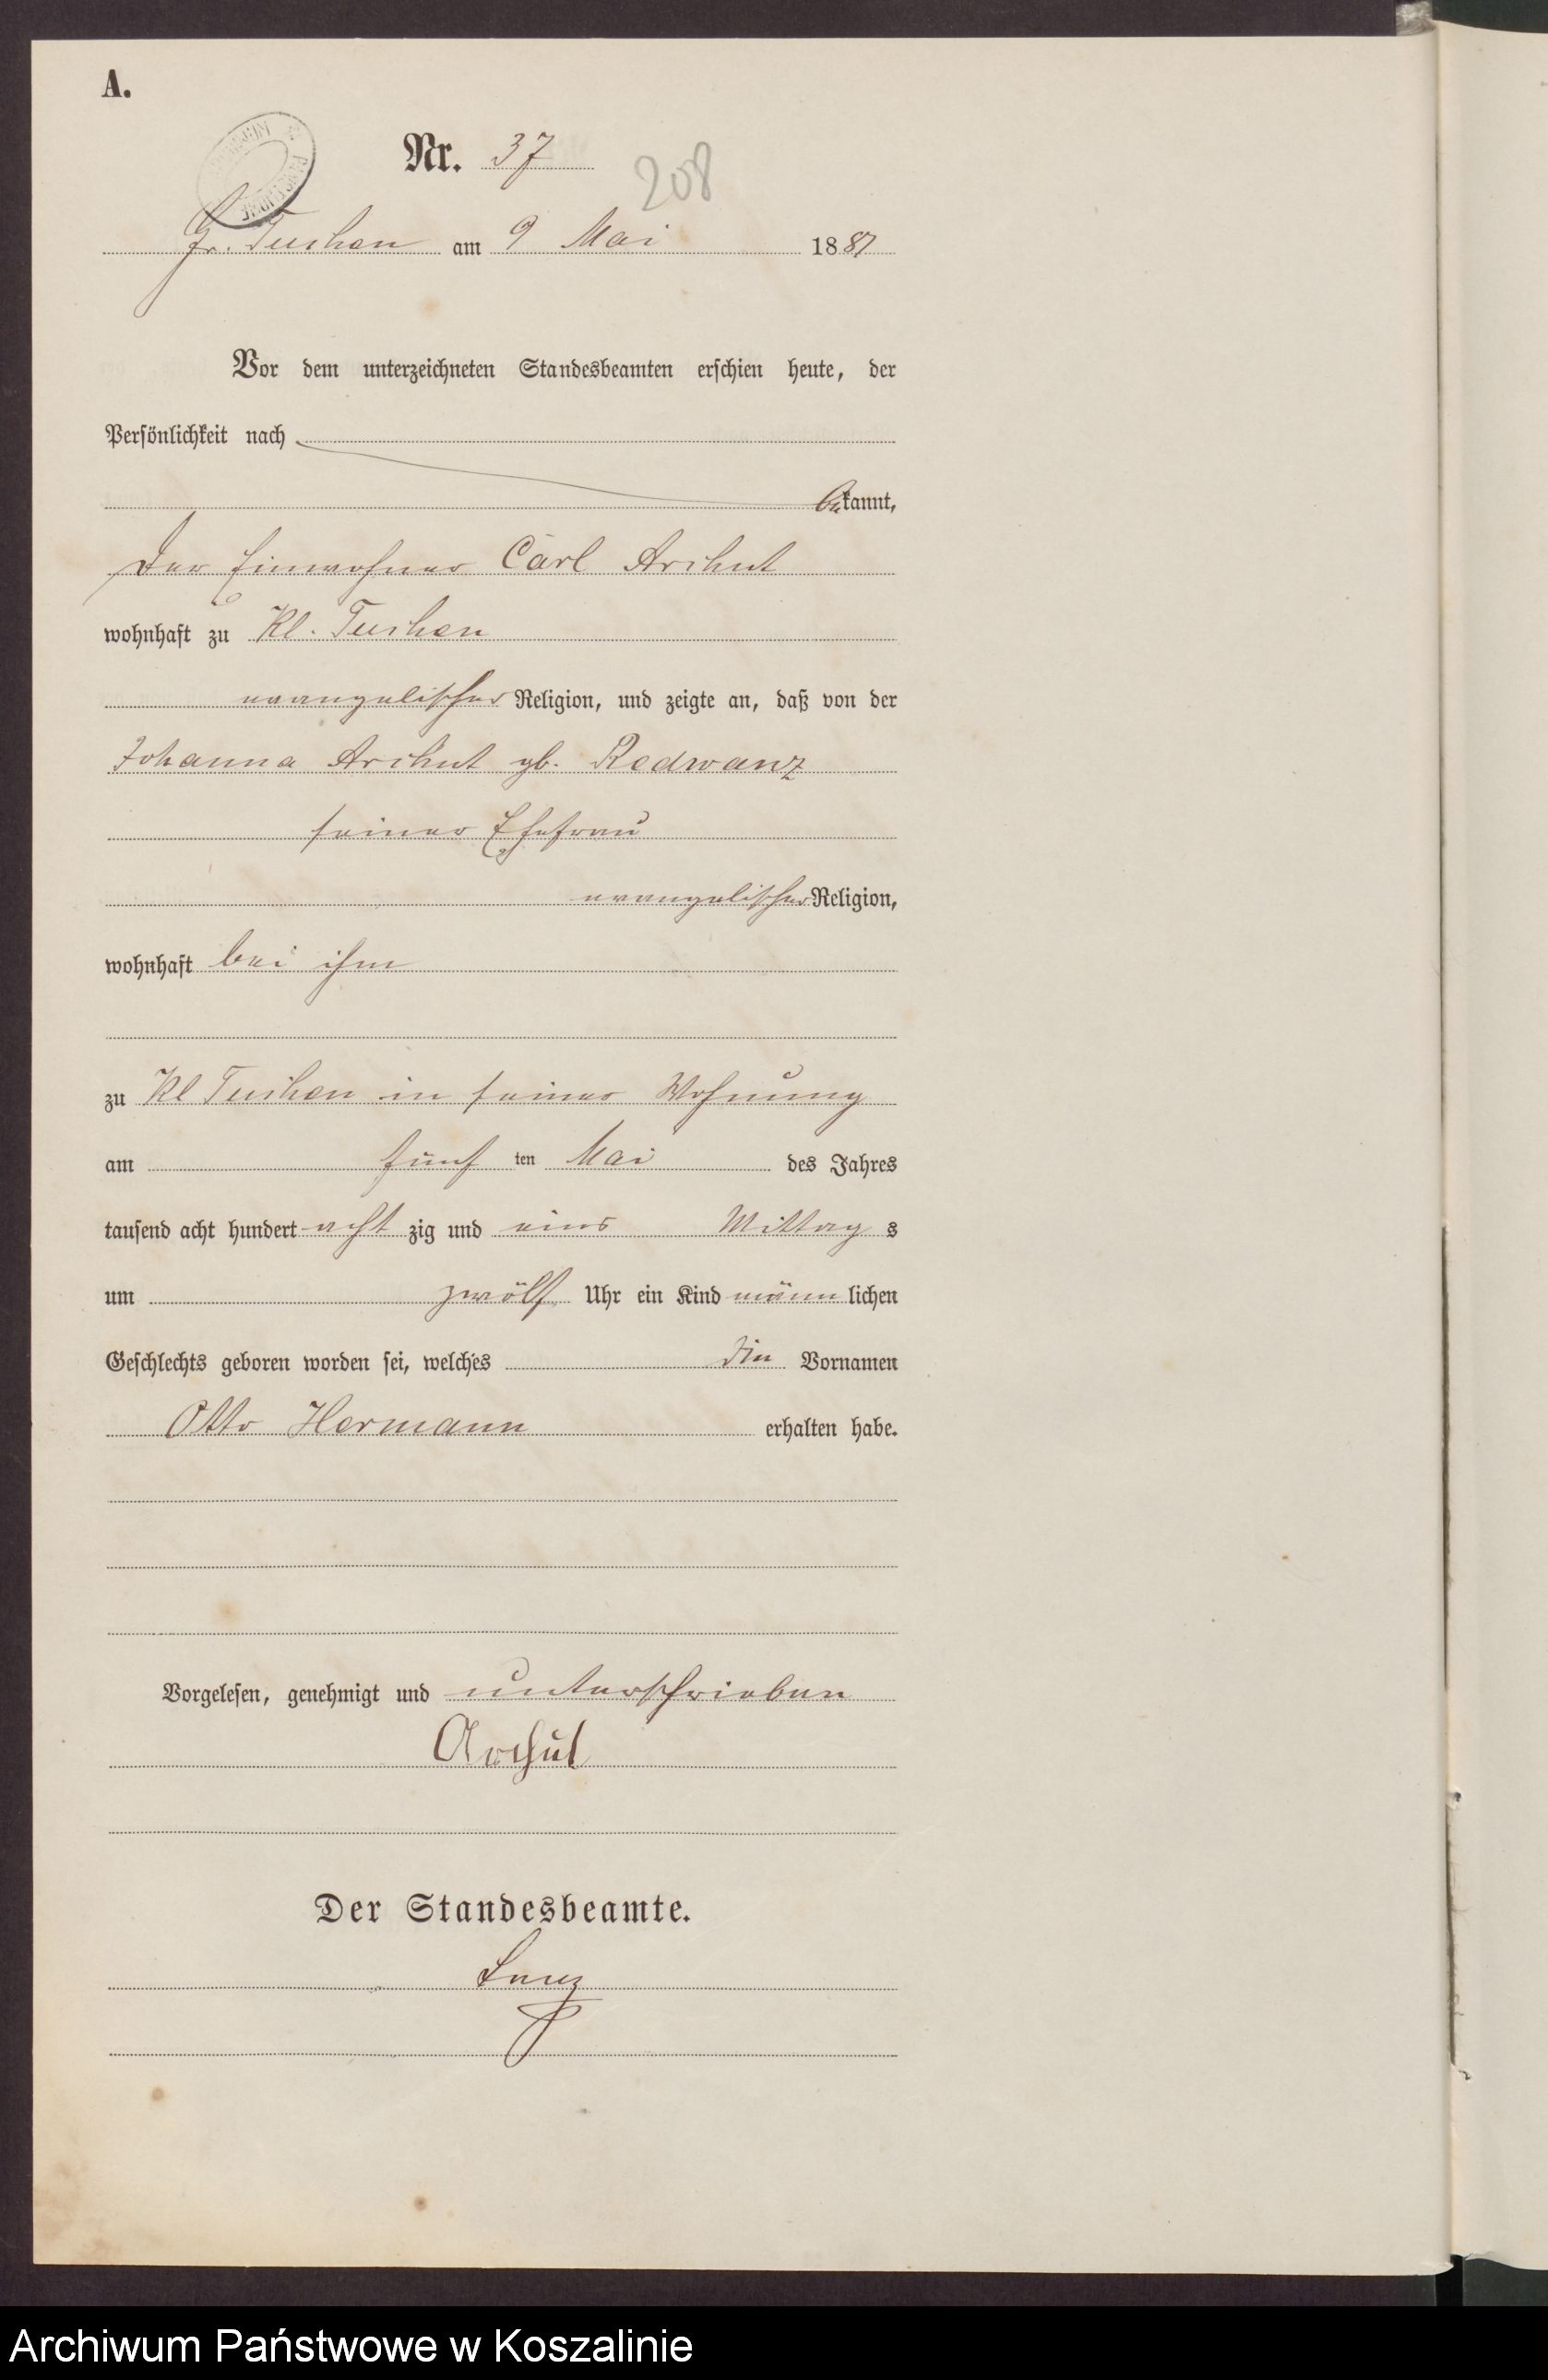 A.
Nr. 37
208
Gr. Tuchen am 9 Mai 1881
Vor dem unterzeichneten Standesbeamten erschien heute, der
Persönlichkeit nach
bekannt,
Der Einwohner Carl Archut
wohnhaft zu Kl. Tuchen
evangelischer Religion, und zeigte an, daß von der
Johanna Archut gb. Redwanz
seiner Ehefrau
evangelischer Religion,
wohnhaft bei ihm
zu Kl Tuchen in seiner Wohnung
am fünf ten Mai des Jahres
tausend acht hundert acht zig und eins Mittag s
um zwölf Uhr ein Kind männ lichen
Geschlechts geboren worden sei, welches die Vornamen
Otto Hermann erhalten habe.
Vorgelesen, genehmigt und unterschrieben
Archut
Der Standesbeamte.
Archiwum Państwowe w Koszalinie